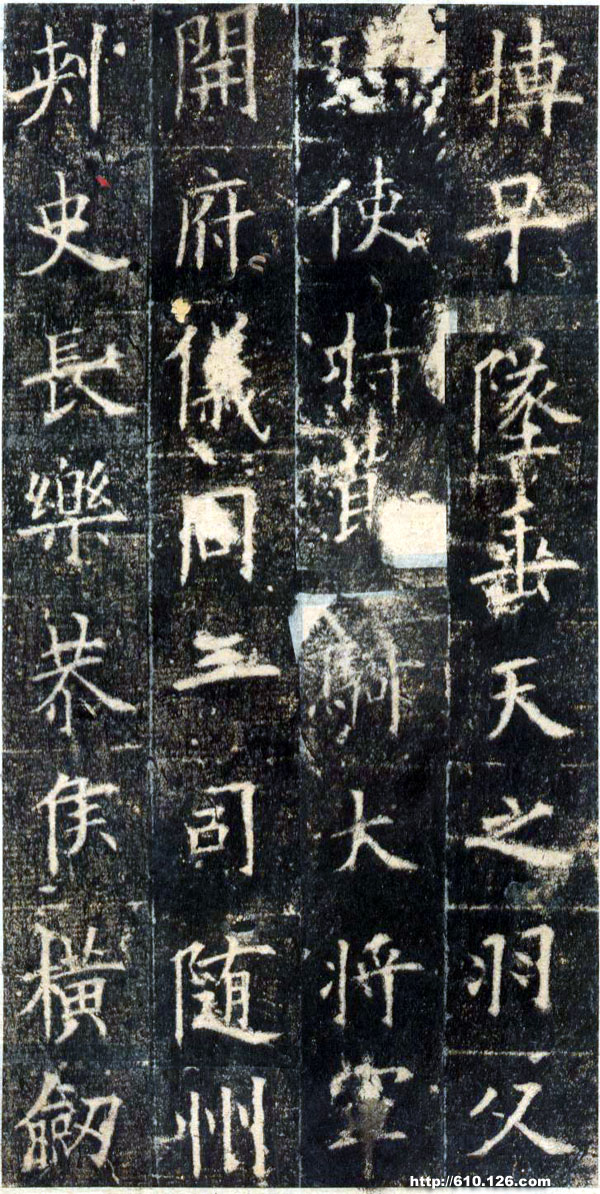 摶早墜垂天之羽父
使持大將軍
開府儀同三司随州
刺史長樂恭侯橫劒
http://610.126.com